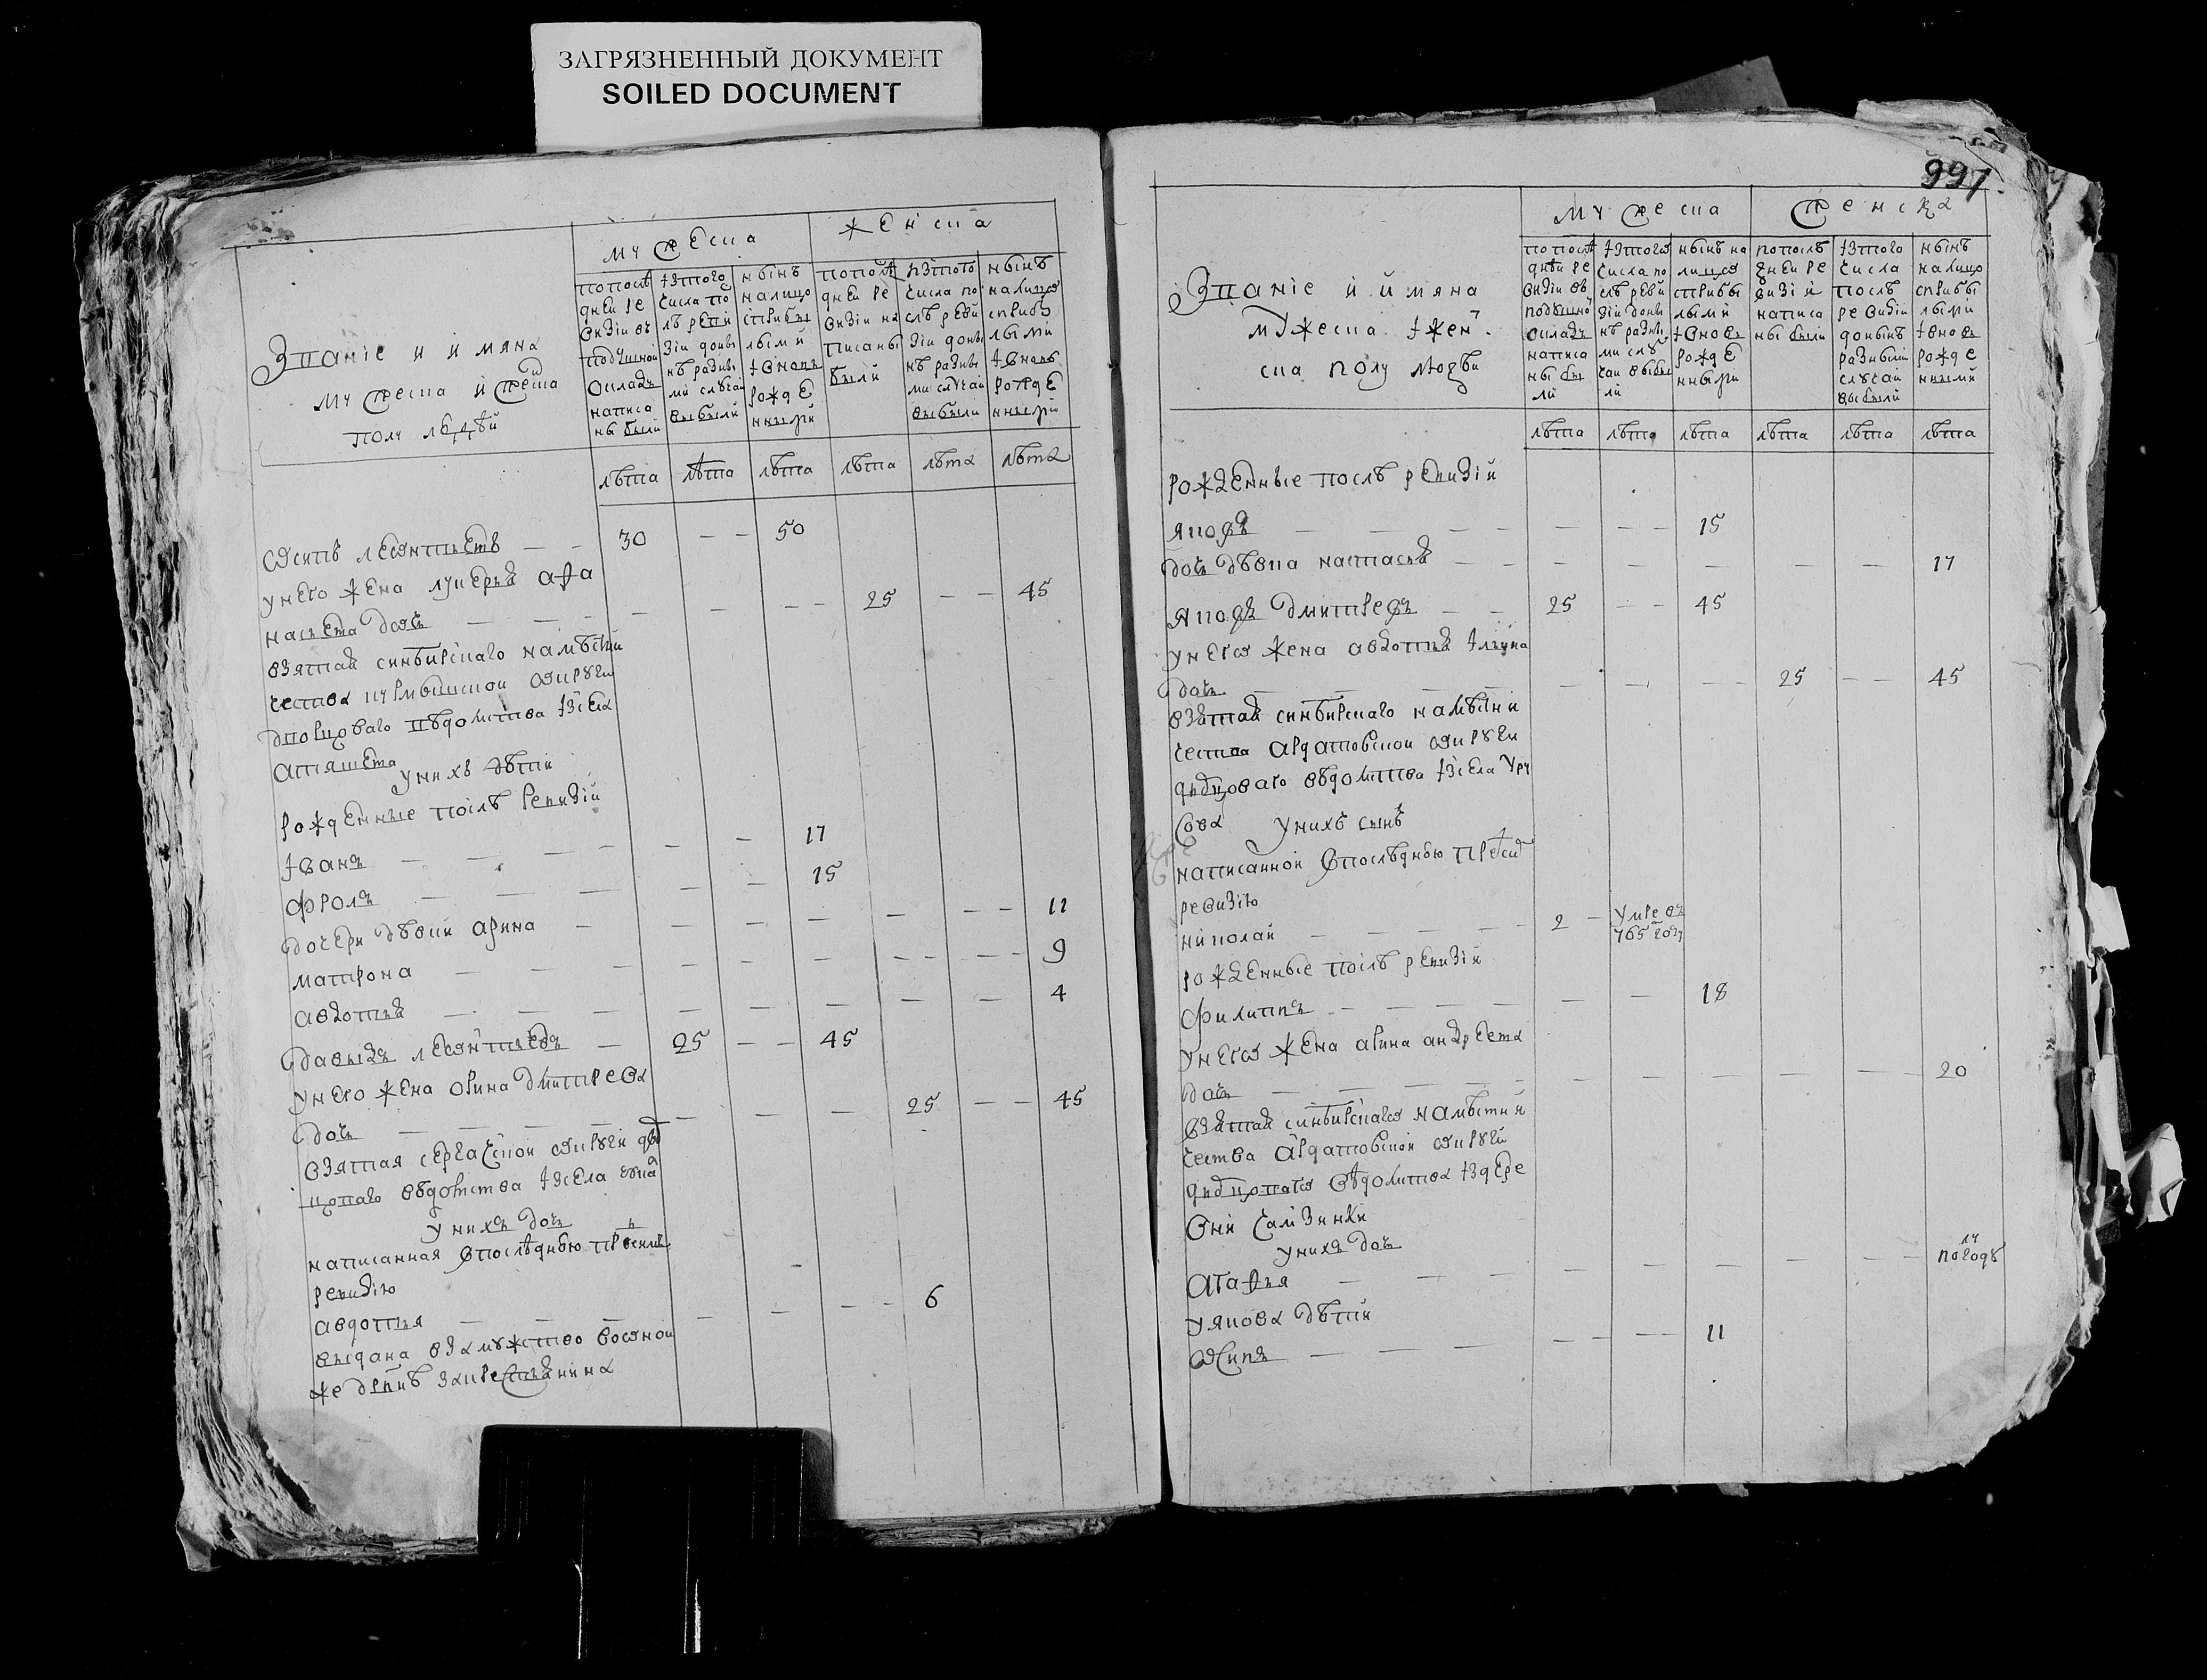 ЗАГРЯЗНЕННЫЙ ДОКУМЕНТ
SOILED DOCUMENT
997
Звание и имяна
мужеска и женска
полу людей
мужеска
женска
по последней ревизии в подушной оклад написаны были
из того числа после ревизии до ныне разными случаи выбыли
ныне на лицо с прибылыми и вновь рожденными
по последней ревизии написаны были
из того числа после ревизии до ныне разными случаи выбыли
ныне на лицо с прибылыми и вновь рожденными
лѣта лѣта лѣта лѣта лѣта лѣта
Осипъ леонтьевъ — — 30 — — 50
у него жена лукерья афа
насьева дочь — — — — — — 25 — — 45
взятая синбирскаго намѣстни
чества курмышской округи
дворцоваго вѣдомства із села
атяшева
у нихъ дѣти
рожденные послѣ ревизіи
іванъ — — — — — 17
фролъ — — — — — 15
дочери дѣвки арина — — — — — — 11
матрона — — — — — — — — 9
авдотья — — — — — — — — 4
давыдъ леонтьевъ — 25 — — 45
у него жена орина дмитрева
дочь — — — — — — — 25 — — 45
взятая сергаской округи дво
цоваго вѣдомства із села
у нихъ дочь
написанная в последнюю пред сим
ревизию
авдотья — — — — — — — 6
выдана в замужство во оной
же дрвнѣ за крестьянина
997
Звание и имяна
мужеска і жен
ска полу людѣи
мужеска
женска
по последней ревизии в подушной оклад написаны были
із того числа послѣ ревизіи до нынѣ разными случаи выбыли
нынѣ на лицо с прибылыми і вновь рожденными
по последней ревизіи написаны были
із того числа послѣ ревизіи до нынѣ разными случаи выбыли
нынѣ на лицо с прибылыми і вновь рожденными
лѣта лѣта лѣта лѣта лѣта лѣта
рожденные послѣ ревизіи
яковъ — — — — — — — 15
дочь дѣвка настасья — — — — — — — 17
яковъ дмитревъ — — 25 — — 45
у него жена авдотья ильина
дочь — — — — — — — — 25 — — 45
взятая синбирскаго намѣстни
чества ардатовской округи
дворцоваго вѣдомства із села уру
сова у нихъ сынъ
написанной в последнюю пред сим
ревизию
николай — — — — 2 — умре въ
765 году
рожденные послѣ ревизіи
филиппъ — — — — — 18
у него жена арина андреева
дочь — — — — — — — — — — 20
взятая синбирскаго намѣстни
чества ардатовской округи
дворцоваго вѣдомства із дере
вни
у нихъ дочь
агафья — — — — — — — — — полугоду
у якова дѣти
осипъ — — — — — — — 11